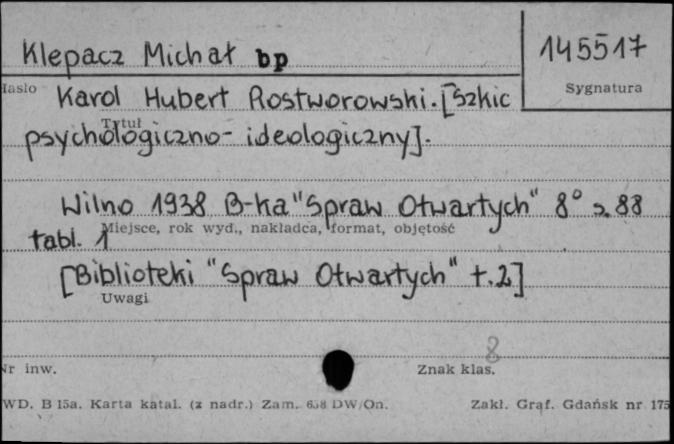 Klepacz Michał bp
145517
Sygnatura
Hasło
Karol Hubert Rostworowski. [Szkic
Tytuł
psychologiczno- ideologiczny].
Wilno 1938 B-ka "Spraw Otwartych" 8° s. 88
Miejsce, rok wyd., nakładca, format, objętość
tabl. 1
[Biblioteki "Spraw Otwartych" t. 2]
Uwagi
8
Nr inw.
Znak klas.
WD. B 15a. Karta katal. (z nadr.) Zam. DW/On.
Zakł. Graf. Gdańsk nr 175